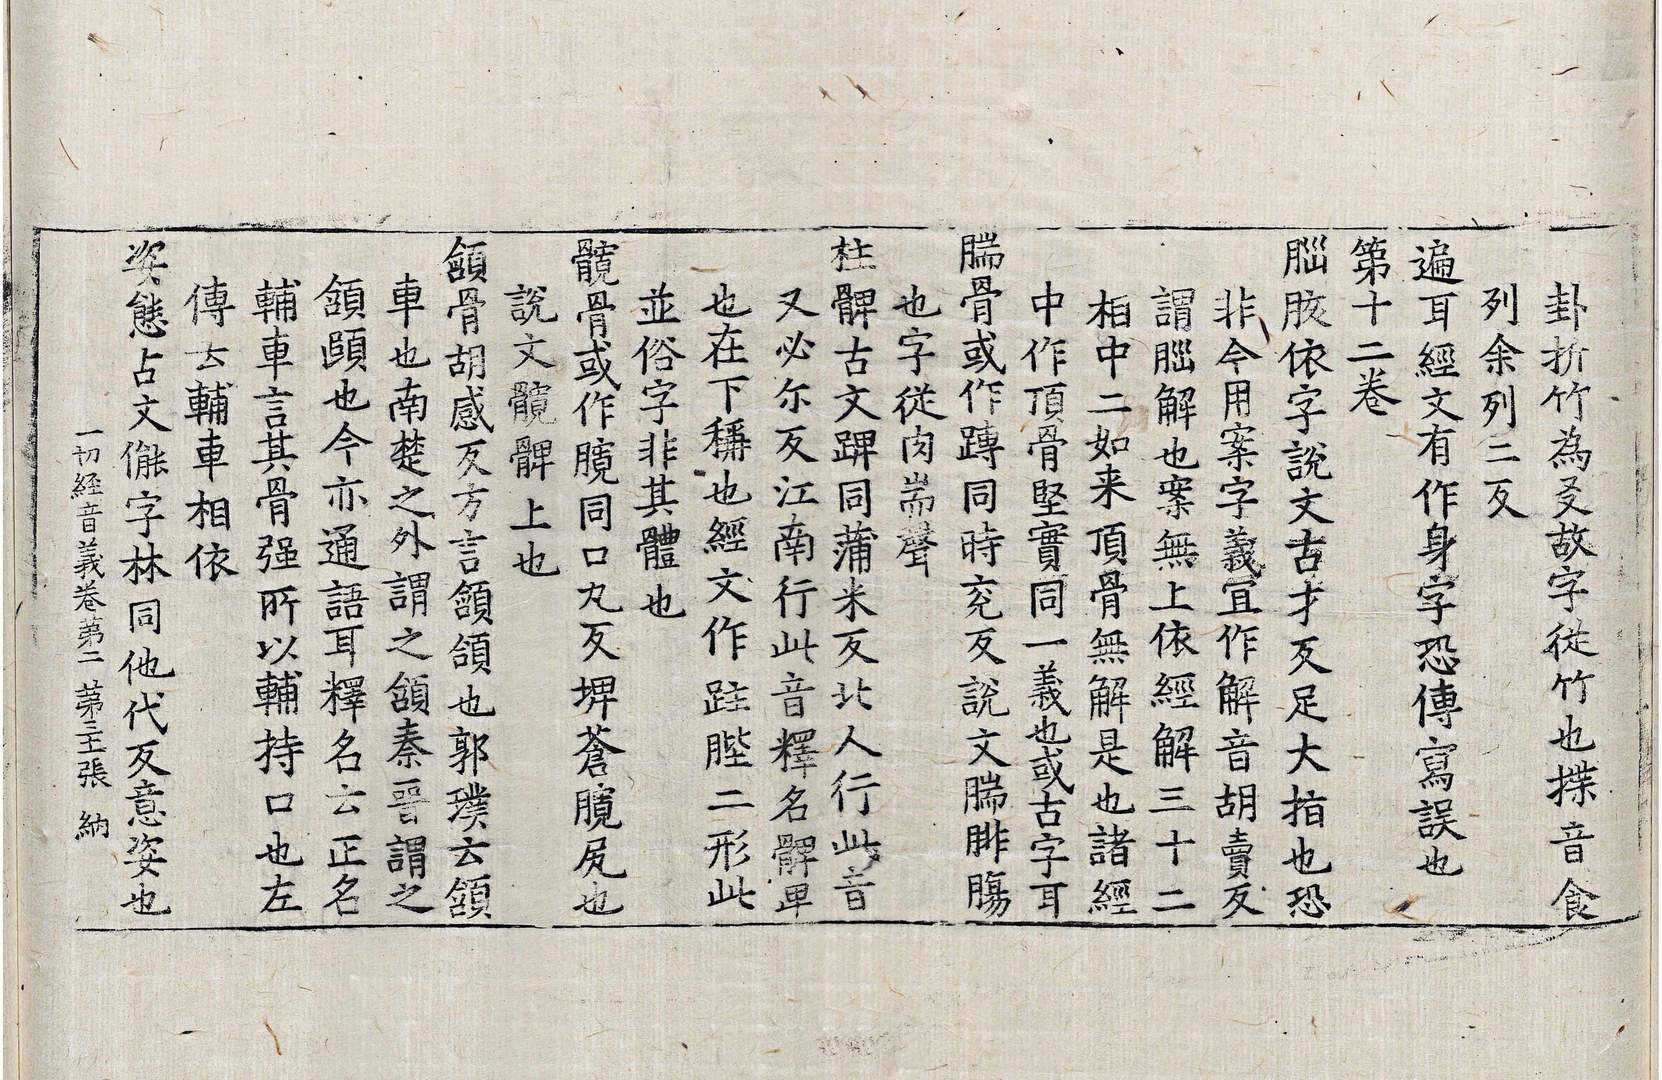 卦折竹為爻故字從竹也揲音食
列余列二反
遍耳經文有作身字恐傳寫誤也
第十二卷
腦胲依字說文古才反足大指也恐
非今用案字義冝作解音胡賣反
謂腦解也案無上依經解三十二
相中二如来頂骨無解是也諸經
中作頂骨堅實同一義也或古字耳
腨骨或作䠣同時兖反說文腨腓腸
也字從肉耑聲
柱髀古文踔同蒲米反北人行此音
又必尒反江南行此音釋名髀卑
也在下稱也經文作跓䏶二形此
並俗字非其體也
髖骨或作臗同口丸反埤蒼臗尻也
說文髖髀上也
頷骨胡感反方言頷頜也郭璞云頷
車也南楚之外謂之頷秦晉謂之
頜頤也今亦通語耳釋名云正名
輔車言其骨强所以輔持口也左
傳云輔車相依
姿態古文儱字林同他代反意姿也
一切經音義卷第二 第三王張 納